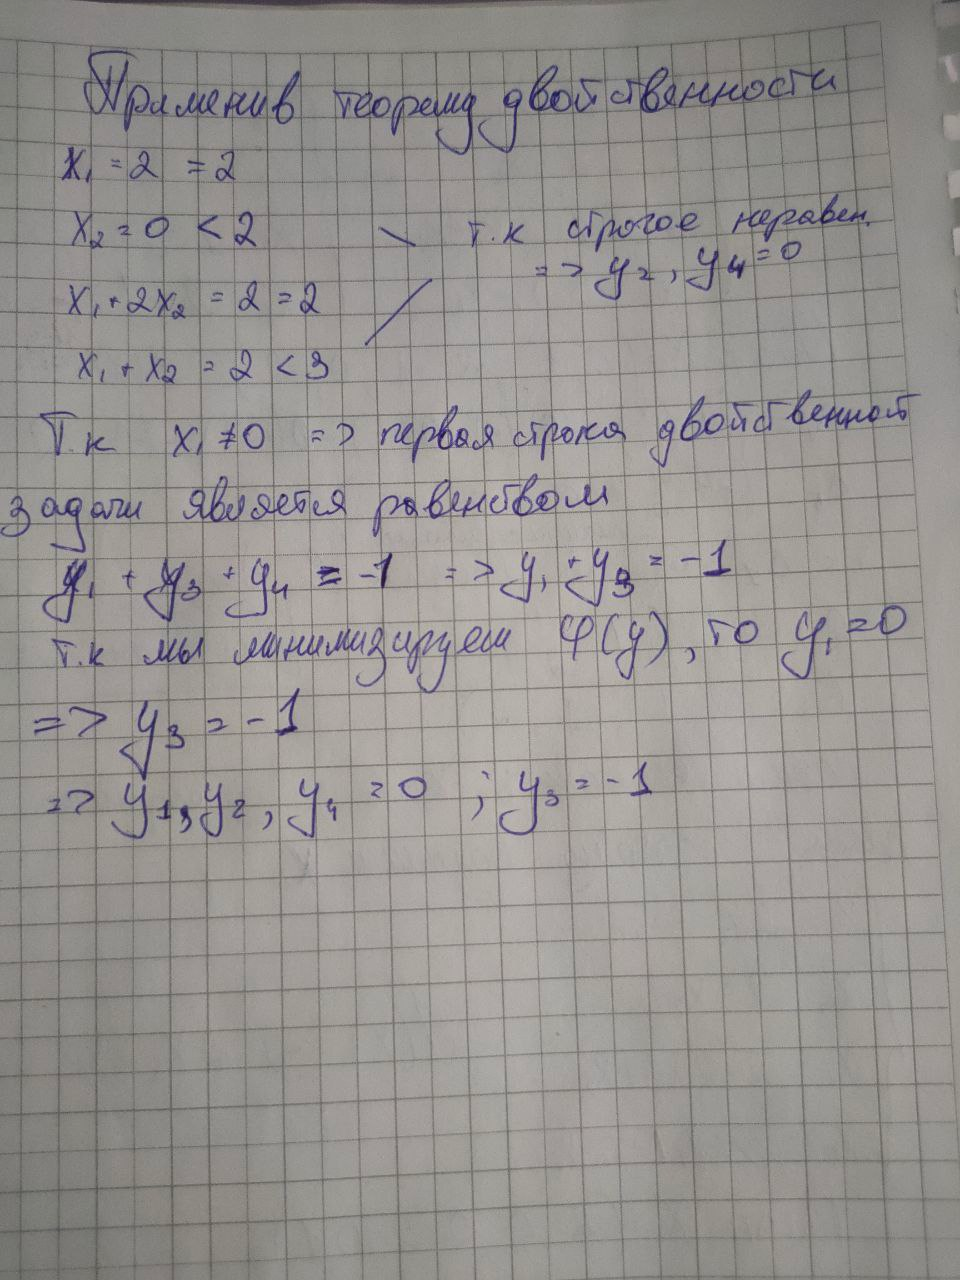 Применив теорему двойственности
x₁ = 2 = 2
x₂ = 0 < 2 т.к строгое неравен.
=> y₂, y₄ = 0
x₁ + 2x₂ = 2 = 2
x₁ + x₂ = 2 < 3
Т.к x₁ ≠ 0 => первая строка двойственной
задачи является равенством
y₁ + y₃ + y₄ = -1 => y₁ + y₃ = -1
т.к мы минимизируем φ(y), то y₁ = 0
=> y₃ = -1
=> y₁, y₂, y₄ = 0 ; y₃ = -1